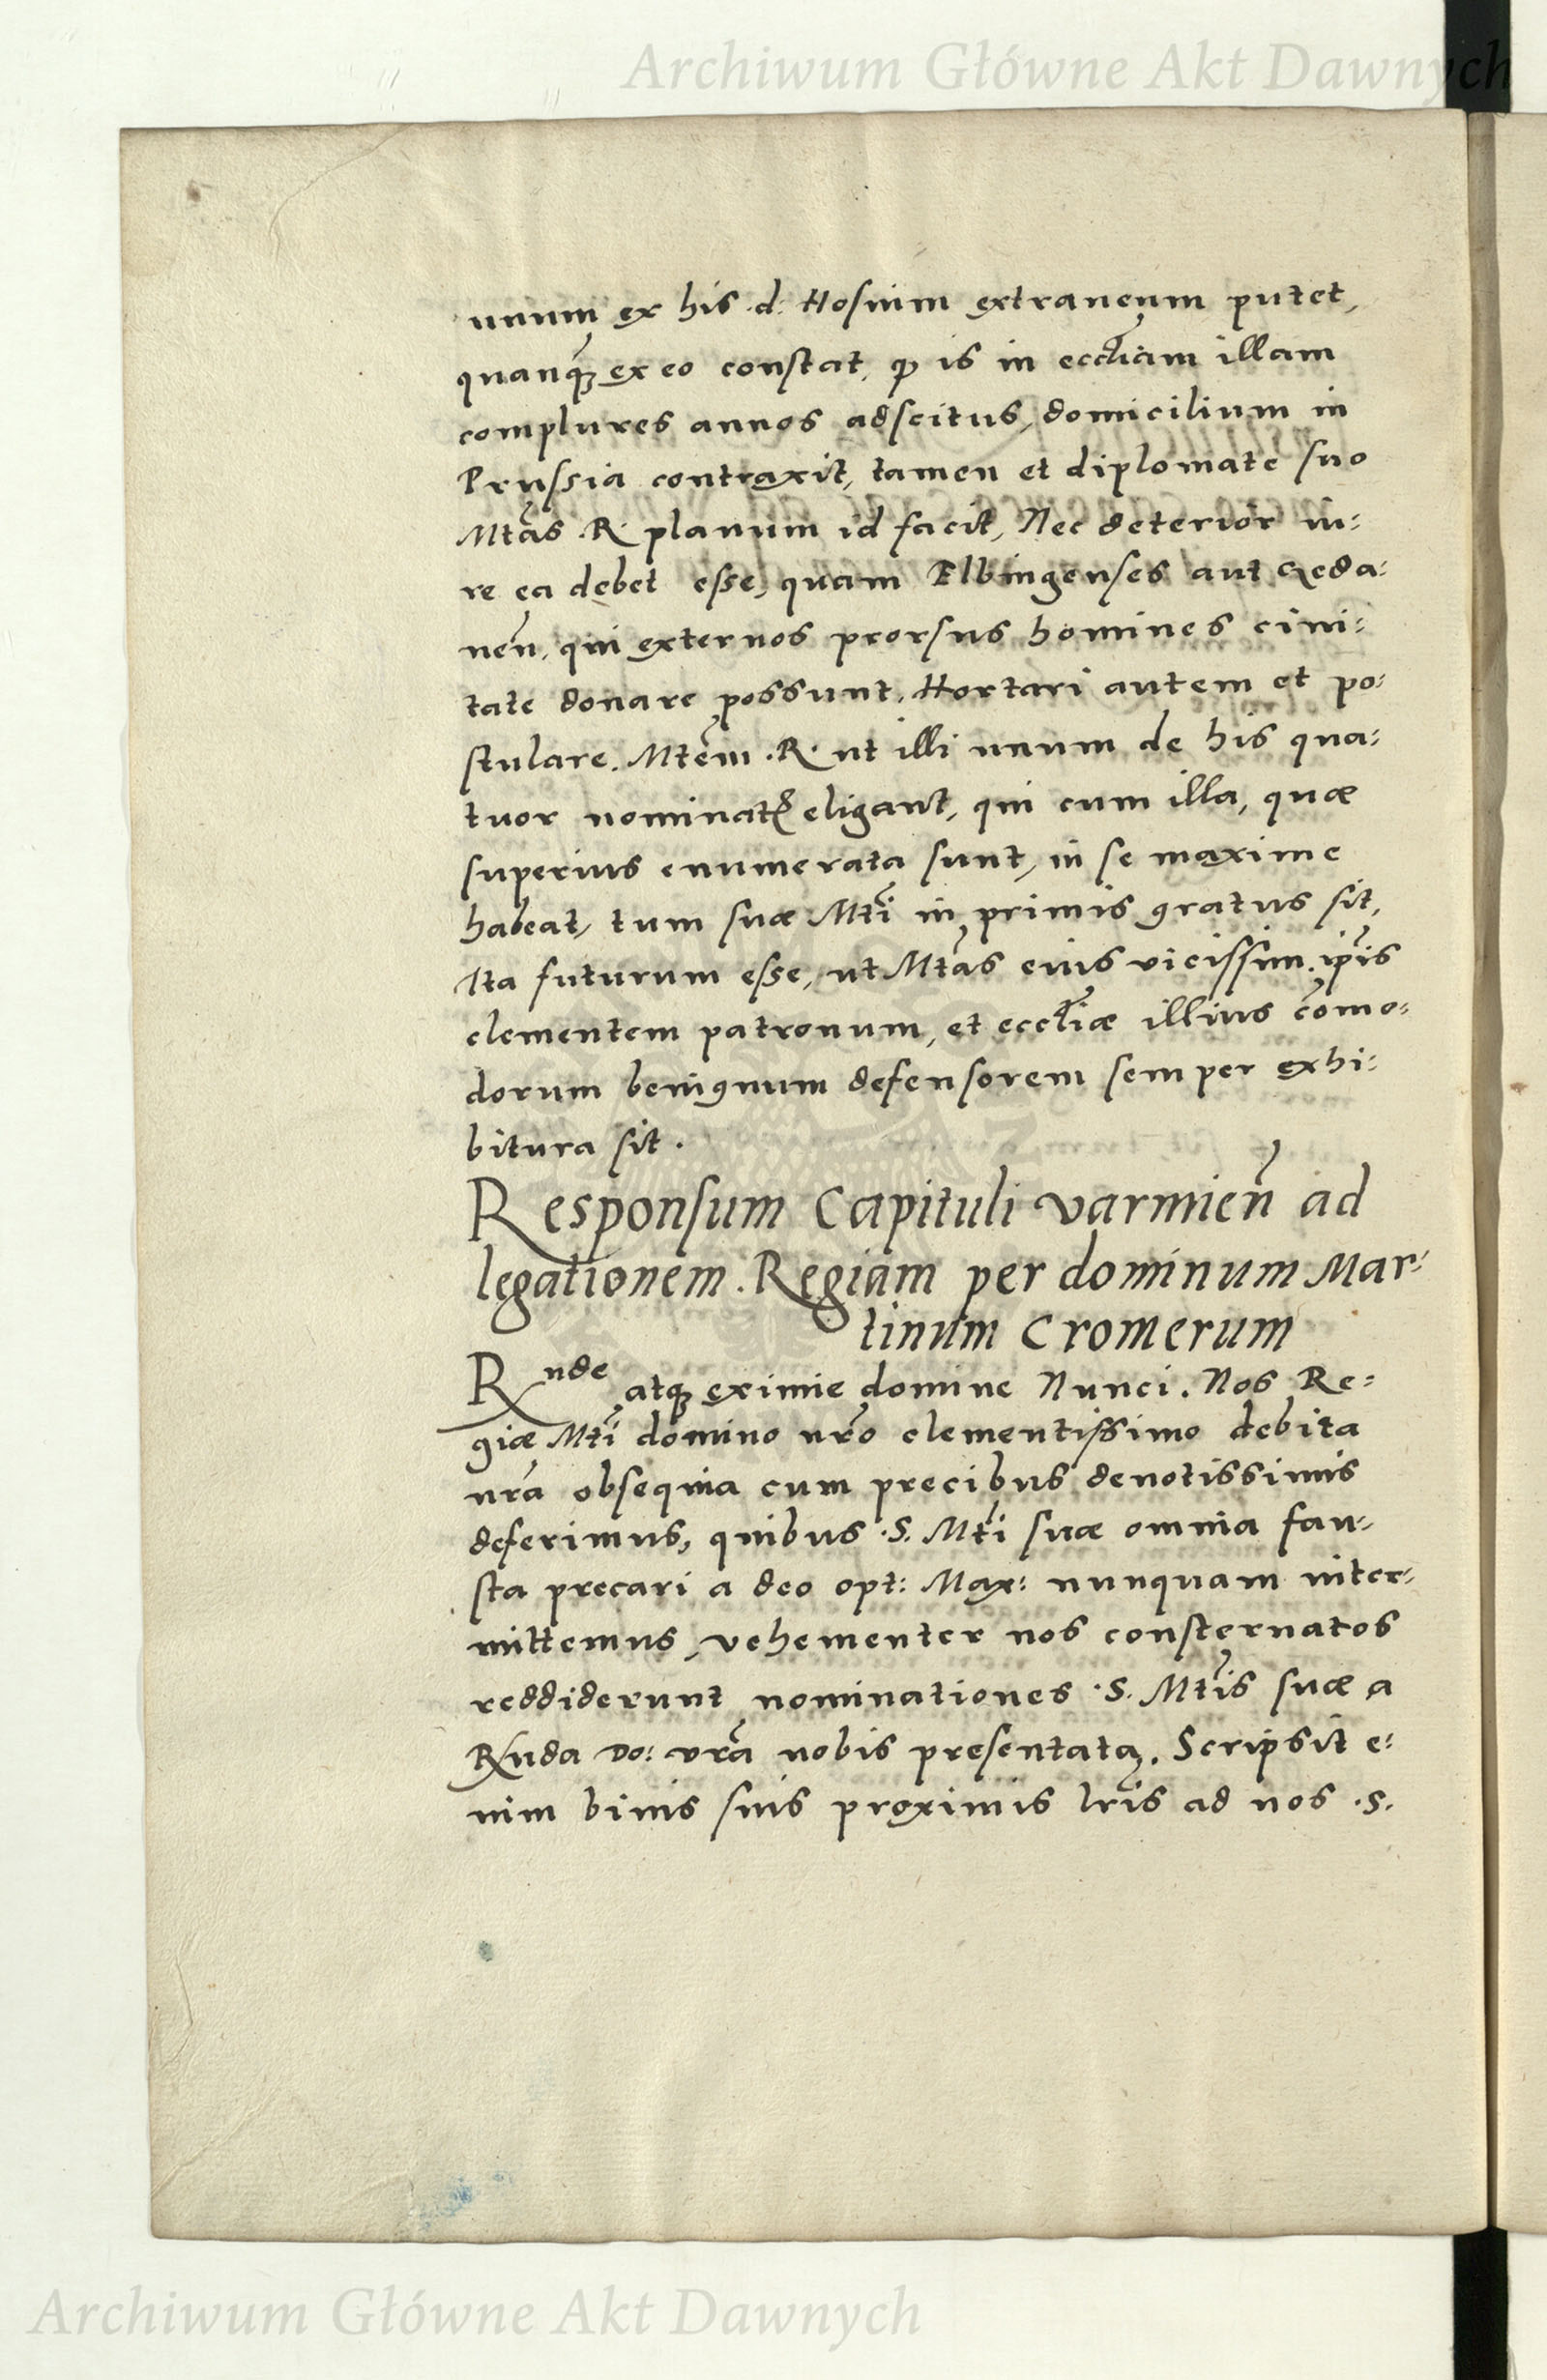 Archiwum Główne Akt Dawnych
unum ex his .d: Hosium extraneum putet,
quanq̃ꝫ ex eo constat, ꝙ is in eccl̃iam illam
complures annos adscitus, domicilium in
Prussia contraxit, tamen et diplomate suo
Mtãs .R. planum id facit, Nec deterior iu:
re ea debet esse, quam Elbingenses aut Geda:
neñ, qui externos prorsus homines ciui:
tate donare possunt, Hortari autem et po:
stulare. Mtẽm .R. ut illi unum de his qua:
tuor nominatꝭ eligant, qui cum illa, quæ
superius enumerata sunt, in se maxime
habeat, tum suæ Mtĩ in primis gratus sit,
Ita futurum esse, ut Mtãs eius vicissim ip̃is
clementem patronum, et eccl̃iæ illius cõmo:
dorum benignum defensorem semper exhi:
bitura sit.
Responsum Capituli varmieñ ad
legationem. Regiam per dominum Mar:
tinum Cromerum
Rnde atqꝫ eximie domine Nunci. Nos Re:
giæ Mtĩ domino nr̃o clementissimo debita
nr̃a obsequia cum precibus deuotissimis
deferimus, quibus .S. Mtĩ suæ omnia fau:
sta precari a deo opt: Max: nunquam inter:
mittemus, vehementer nos consternatos
reddiderunt nominationes .S. Mtĩs suæ a
Rnda Do: vr̃a nobis presentatę. Scripsit e:
nim binis suis proximis lr̃is ad nos .S.
Archiwum Główne Akt Dawnych